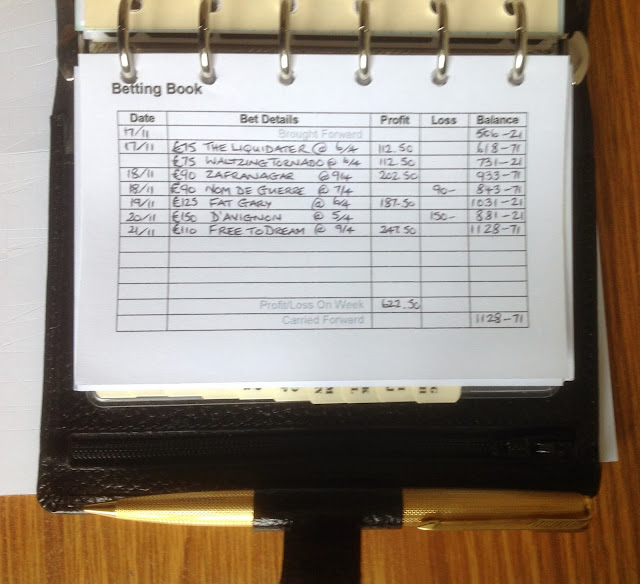 Betting Book
Date Bet Details Profit Loss Balance
17/11 Brought Forward 506-21
17/11 £75 THE LIQUIDATER @ 6/4 112.50 618-71
£75 WALTZING TORNADO @ 6/4 112.50 731-21
18/11 £90 ZAFRANAGAR @ 9/4 202.50 933-71
18/11 £90 NOM DE GUERRE @ 7/4 90- 843-71
19/11 £125 FAT GARY @ 6/4 187.50 1031-21
20/11 £150 D'AVIGNON @ 5/4 150- 881-21
21/11 £110 FREE TO DREAM @ 9/4 247.50 1128-71
Profit/Loss On Week 622.50
Carried Forward 1128-71